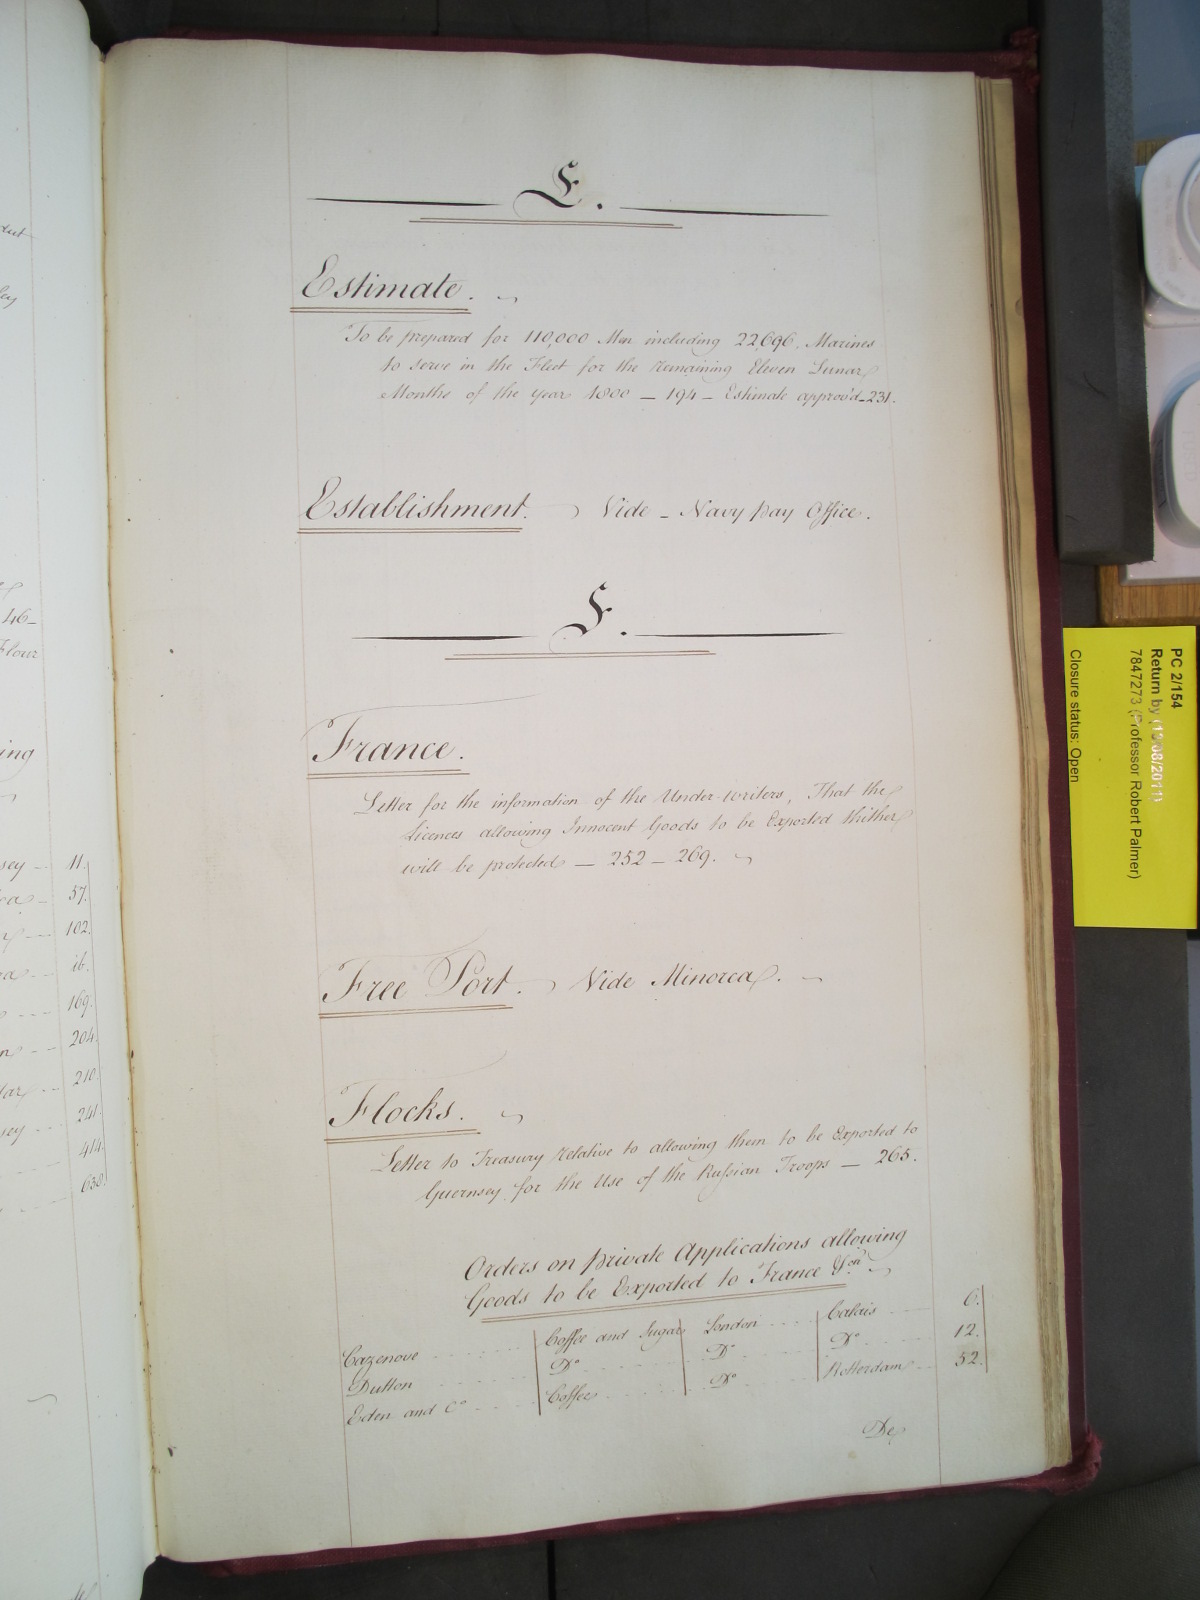 E.
Estimate.
To be prepared for 110,000 Men including 22,696. Marines
to serve in the Fleet for the remaining Eleven Lunar
Months of the year 1800 — 194 — Estimate approv'd — 231.
Establishment. Vide — Navy pay Office.
F.
France.
Letter for the information of the Under-writers, That the
Licences allowing Innocent Goods to be Exported thither
will be protected — 252 — 269.
Free Port. Vide Minorca.
Flocks.
Letter to Treasury Relative to allowing them to be Exported to
Guernsey for the Use of the Russian Troops — 265.
Orders on private Applications allowing
Goods to be Exported to France &con
Cazenove Coffee and Sugar London Calais 6.
Dutton Do Do Do 12.
Eden and Co Coffee Do Rotterdam 52.
De
46
Flour
ing
sey 11.
57.
102.
ib.
169.
204.
210.
sey 241.
414.
638.
PC 2/154
Return by (13/08/2011)
7847273 (Professor Robert Palmer)
Closure status: Open